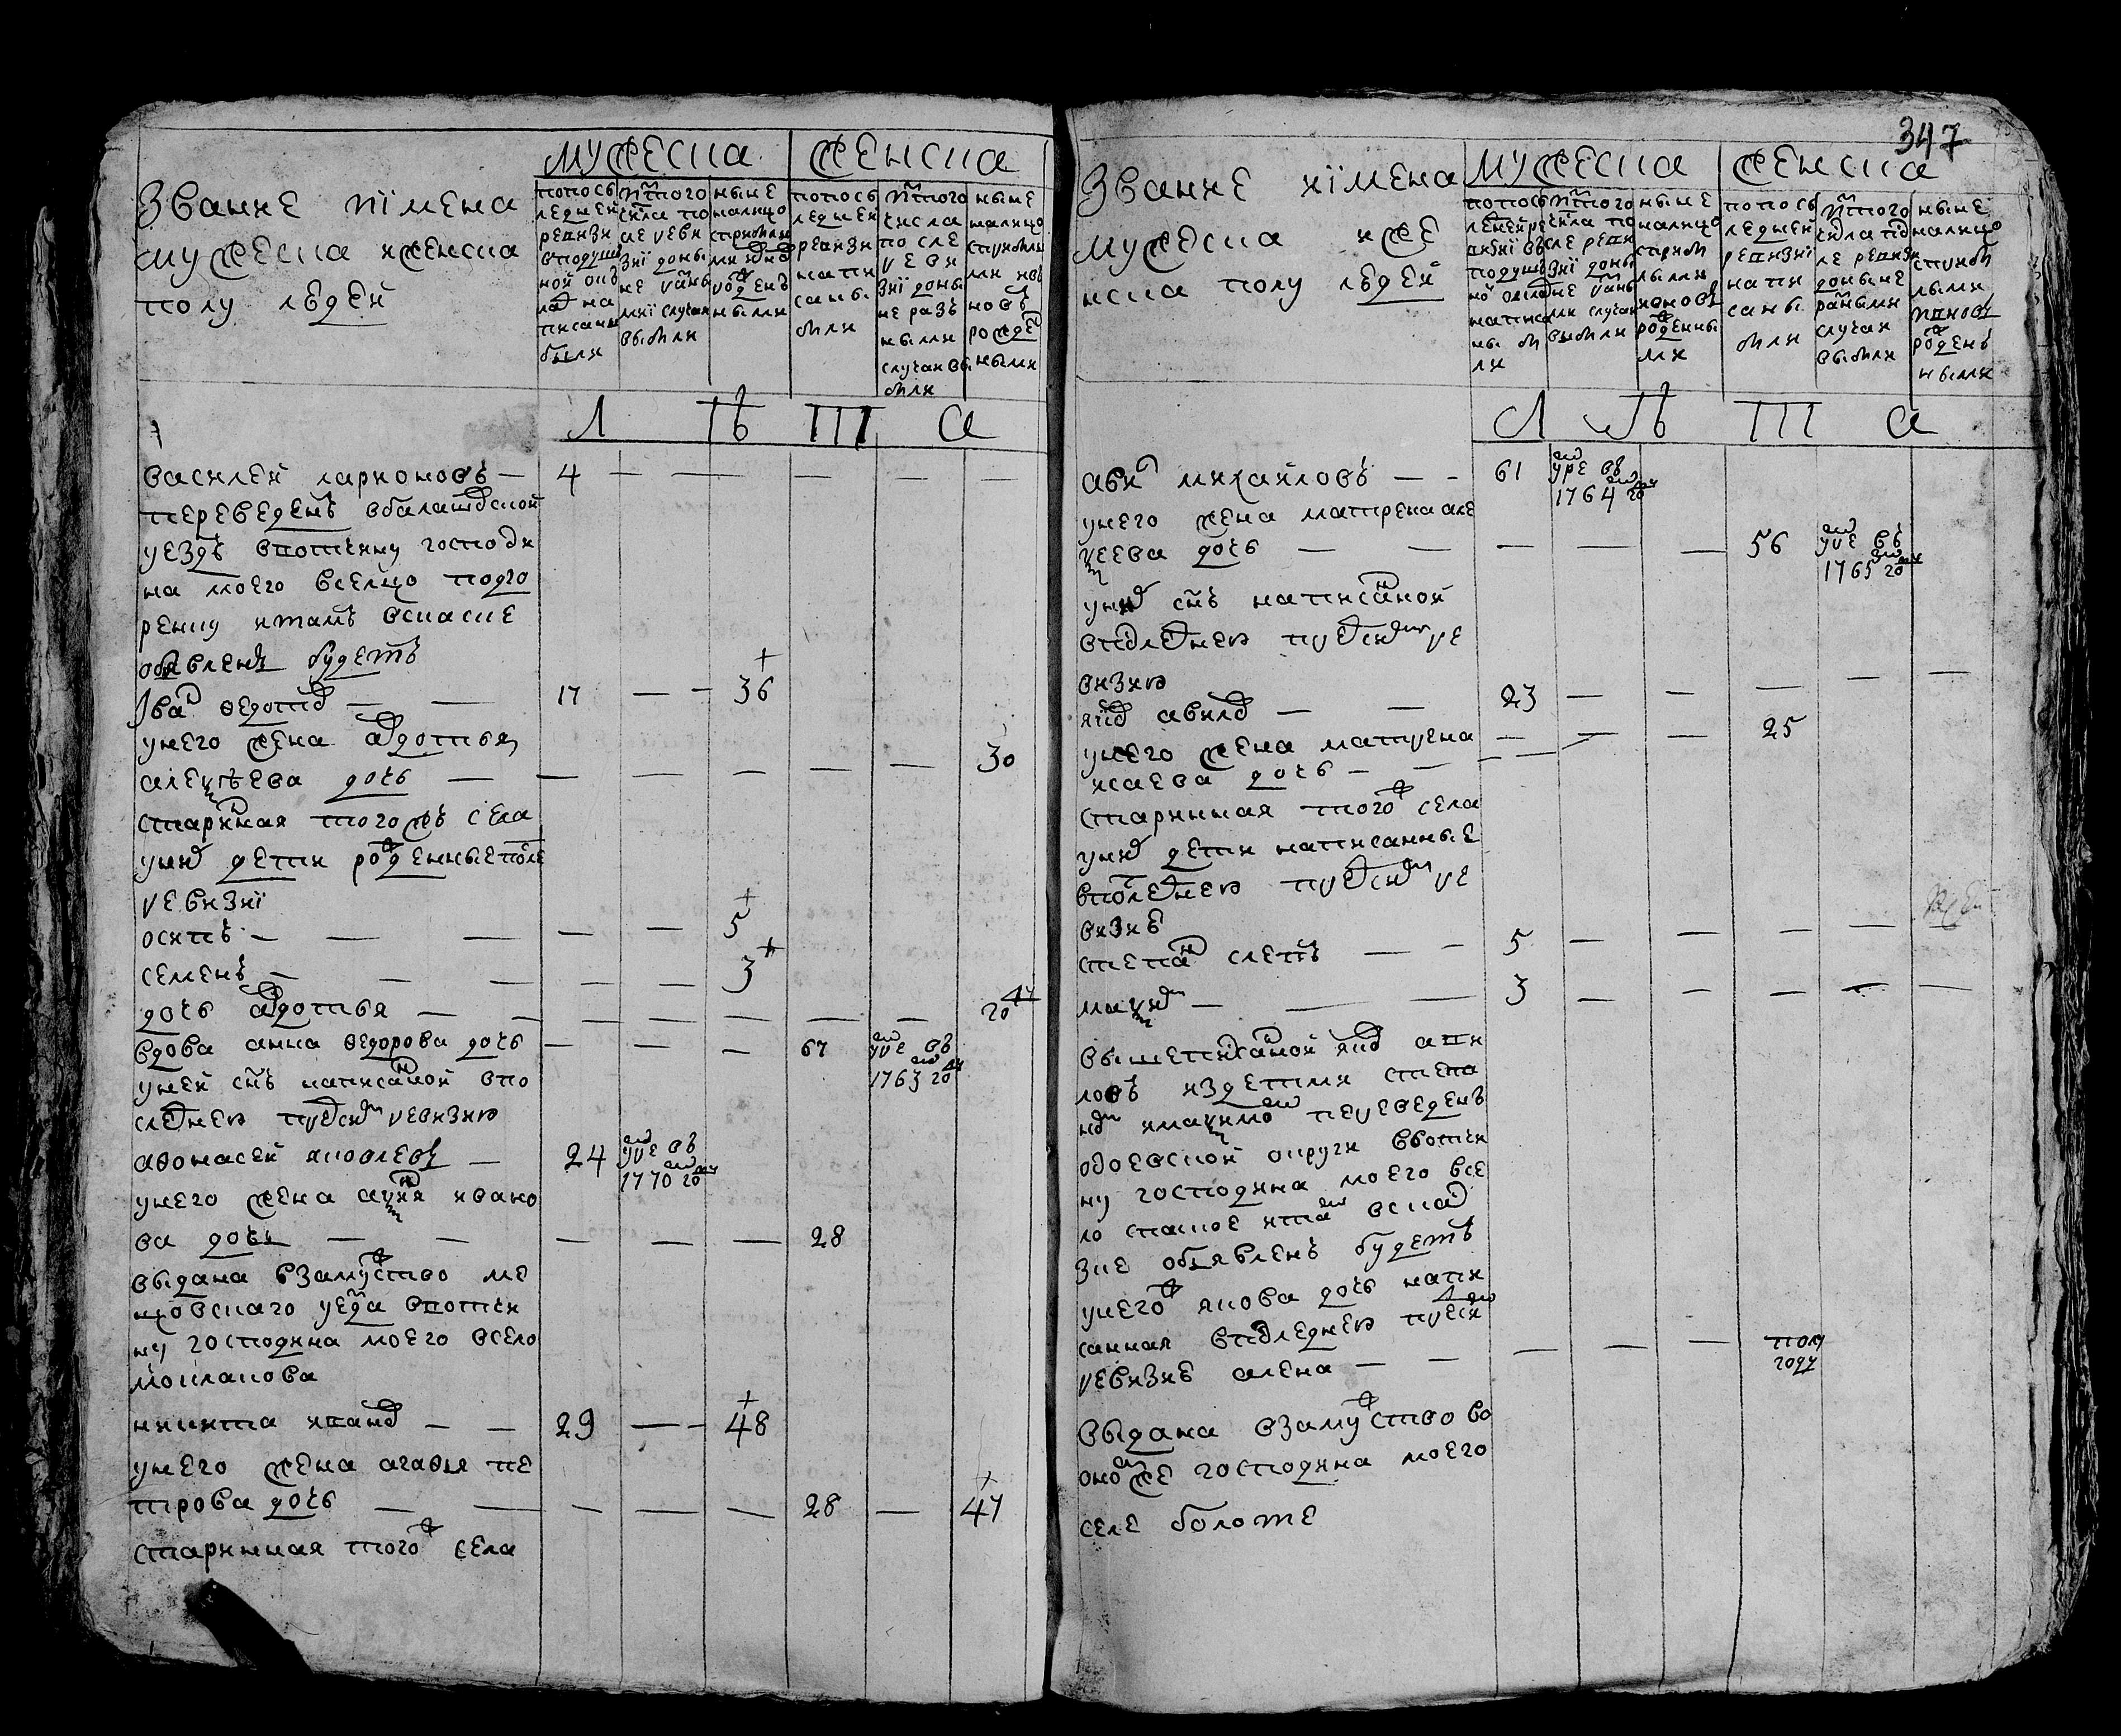 Звание и имена
мужеска и женска
полу людей
мужеска
женска
по посъ
ледней
ревизи
в подуш
ной окъ
лад на
писаны
были
ис того
числа по
сле реви
зиї доны
не разны
миї случаи
выбыли
ныне
налицо
с прибылы
ми и но
рожденъ
ными
по посъ
ледней
ревизи
напи
саны
были
ис того
числа
по сле
реви
зиї доны
не разъ
ными
случаи вы
были
ныне
налицо
с прибылы
ми и въ
новъ
рожде
ными
Л Ѣ Т А
василей ларионовъ — 4
переведенъ в балашевской
уездъ в вотчину господи
на моего в селцо подго
ренку и тамъ в скаске
объявленъ будетъ
Іван Ѳедотов — 17 — 36
у него жена авдотья
алексѣева дочь — 30
старинная того жъ села
у них дети рожденные после
ревизиї
осипъ — 5
семенъ — 3
дочь авдотья — 20 н
вдова анна Ѳедорова дочь — 67 умре въ 1763 году
у ней сынъ написанной в по
следнею пред сим ревизию
аѲонасей яковлевъ — 24 умре въ 1770 году
у него жена аксинья ивано
ва дочь — 28
выдана в замужство ме
щовскаго уезда в вотчи
ну господина моего в село
мокланова
никита иванов — 29 — 48
у него жена агаѲья пе
трова дочь — 28 — 47
старинная того ж села
347
Звание и имена
мужеска и же
нска полу людей
мужеска
женска
по посъ
ледней ре
визиї въ
подуш
ной оклад
написа
ны бы
ли
ис того
числа по
сле реви
зиї доны
не разны
ми случаи
выбыли
ныне
налицо
с прибы
лыми
и новъ
рожденны
ми
по посъ
ледней
ревизиї
напи
саны
были
ис того
числа по
сле ревизи
доныне
разными
случаи
выбыли
ныне
налицо
с прибы
лыми
и вновъ
рожденъ
ными
Л Ѣ Т А
авил михайловъ — 61 умре въ 1764 году
у него жена матрена але
ксеева дочь — 56 умре въ 1765 году
у них сынъ написанной
в последнею пред сим ре
визию
яков авилов — 23
у него жена матрена — 25
исаева дочь —
старинная того ж села
у них дети написанные
в последнею пред сим ре
визиѣ
степан слепъ — 5
максим — 3
вышеписанной яков ави
ловъ из детми степа
ном и максимом переведенъ
одоевской округи в вотчи
ну господина моего в се
ло спаское и там в ска
зке объявленъ будетъ
у него ж якова дочь напи
санная в последнею пред сим
ревизиѣ алена — полу году
выдана в замужство во
оном же господина моего
селе болоте